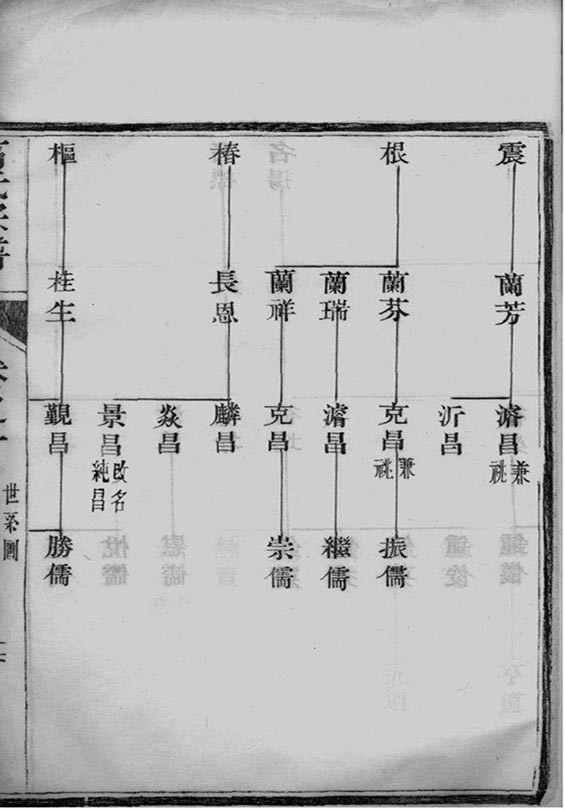 震
根
椿
樞
蘭芳
蘭芬
蘭瑞
蘭祥
長恩
桂生
濬昌
兼祧
沂昌
克昌
兼祧
濬昌
克昌
麟昌
焱昌
景昌
改名
純昌
覲昌
振儒
繼儒
崇儒
勝儒
世系圖